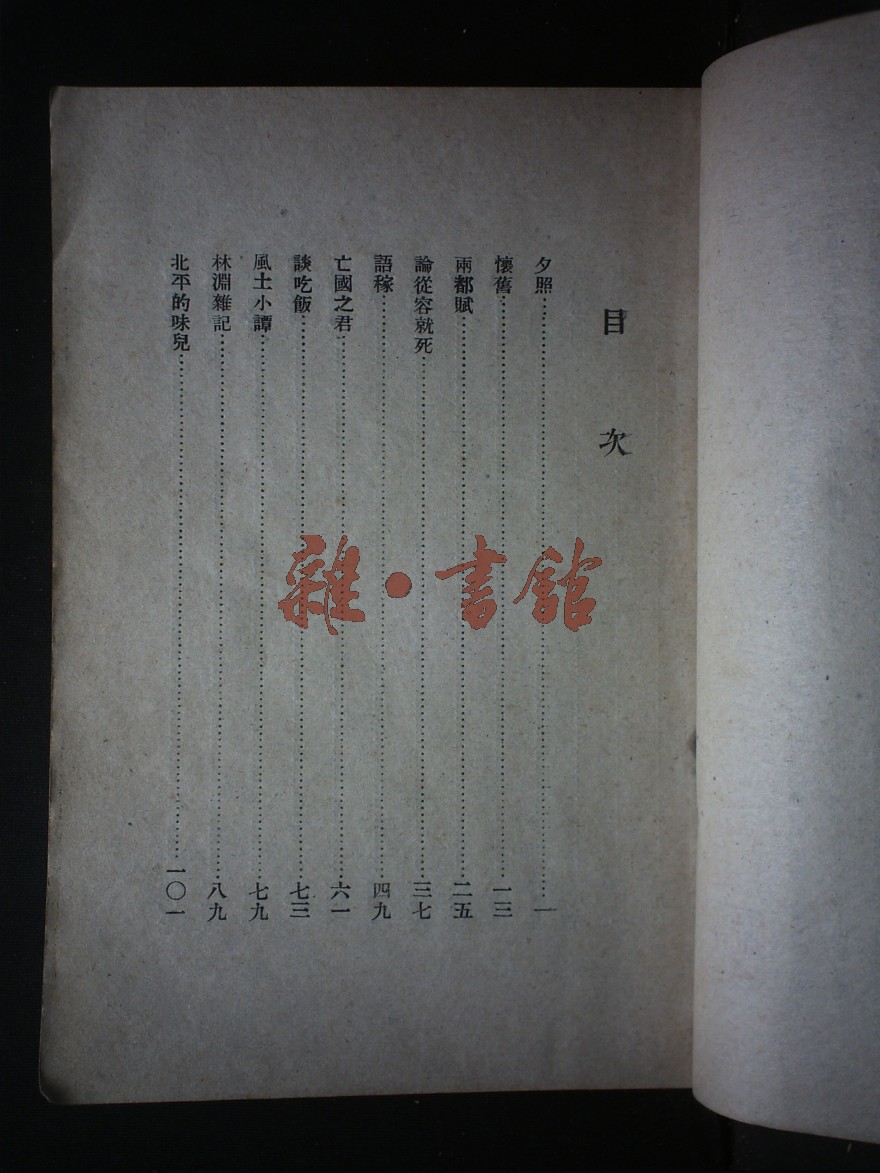 目次
夕照…………一
懷舊…………一三
兩都賦…………二五
論從容就死…………三七
語稼…………四九
亡國之君…………六一
談吃飯…………七三
風土小譚…………七九
林淵雜記…………八九
北平的味兒…………一〇一
雜·書館